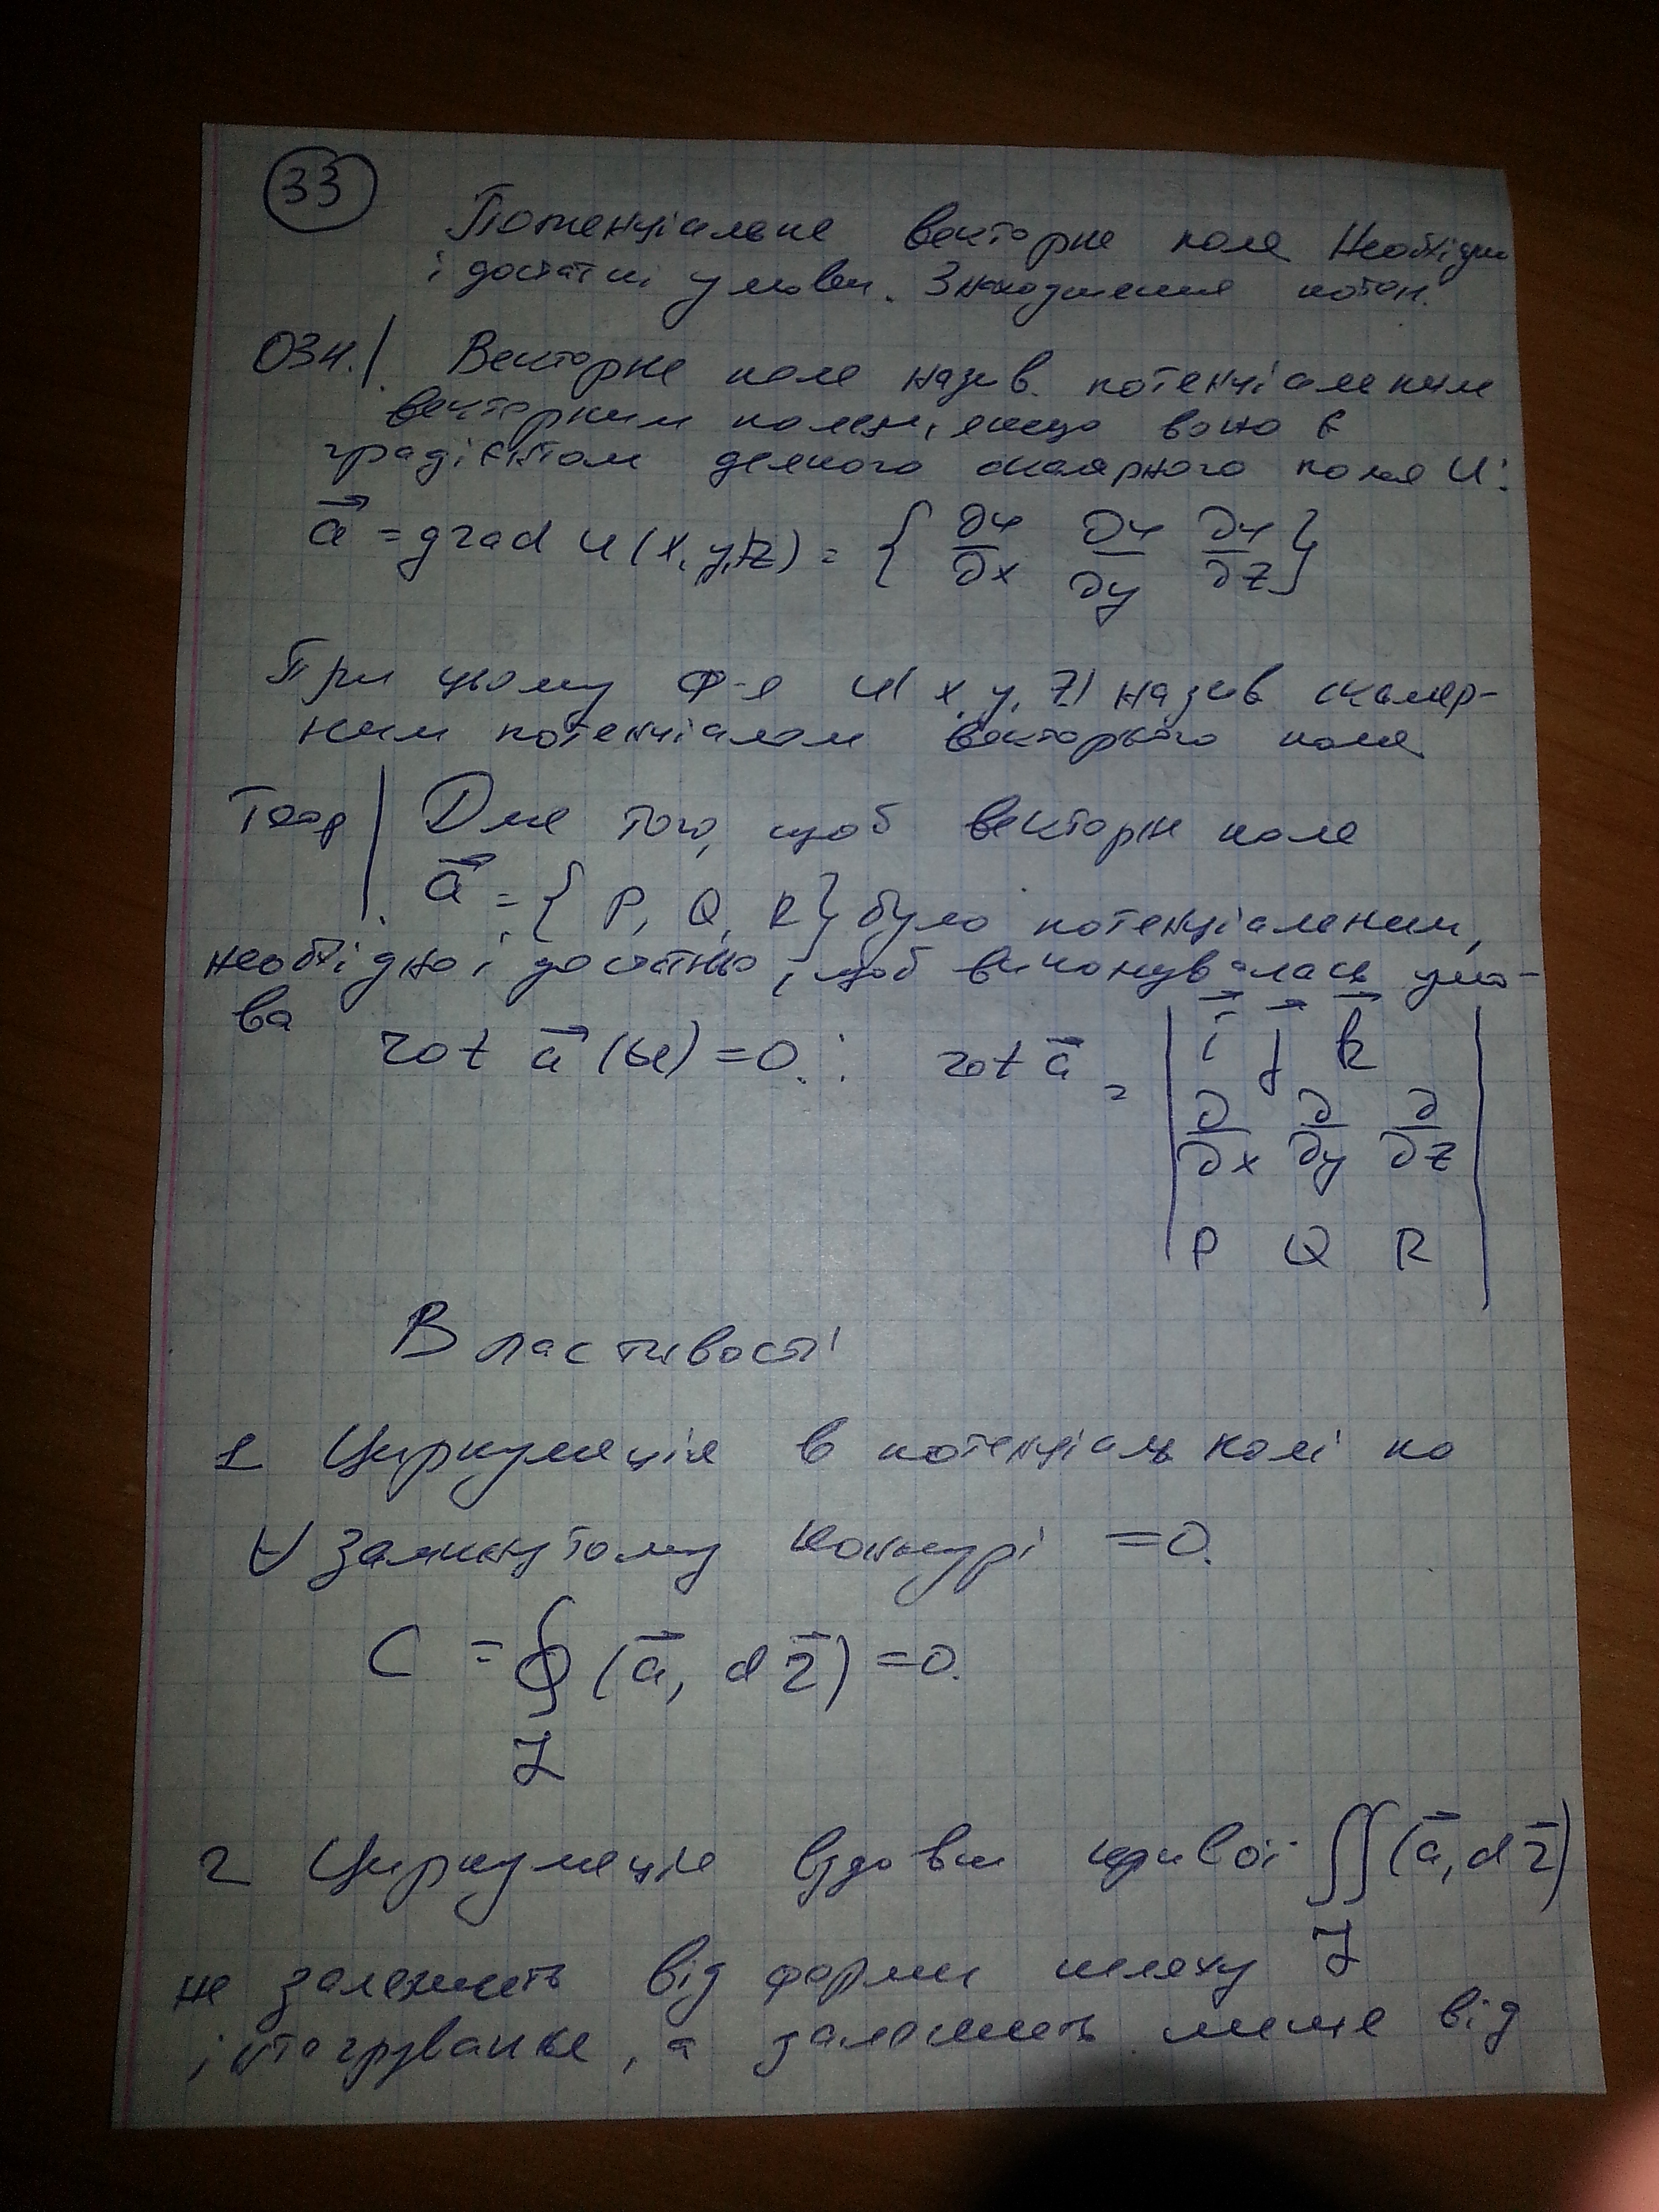 33
Потенціальне векторне поле Необхідні
і достатні умови. Знаходження потен.
Озн. Векторне поле назив. потенціальним
векторним полем, якщо воно є
градієнтом деякого скалярного поля u:
a⃗ = grad u(x, y, z) = { ∂u/∂x ∂u/∂y ∂u/∂z }
При цьому ф-я u(x, y, z) назив скаляр-
ним потенціалом векторного поля
Теор Для того, щоб векторн поле
a⃗ = { P, Q, R } було потенціальним,
необхідно і достатньо, щоб виконувалась умо-
ва
rot a⃗ (м) = 0. rot a⃗ = | i⃗ j⃗ k⃗ |
| ∂/∂x ∂/∂y ∂/∂z |
| P Q R |
Властивості
1 Циркуляція в потенціальн полі по
∀ замкнутому контурі = 0.
C = ∮ (a⃗, dr⃗) = 0.
L
2 Циркуляція вздовж кривої ∬ (a⃗, dr⃗)
L
не залежить від форми шляху
інтегрування, а залежить лише від